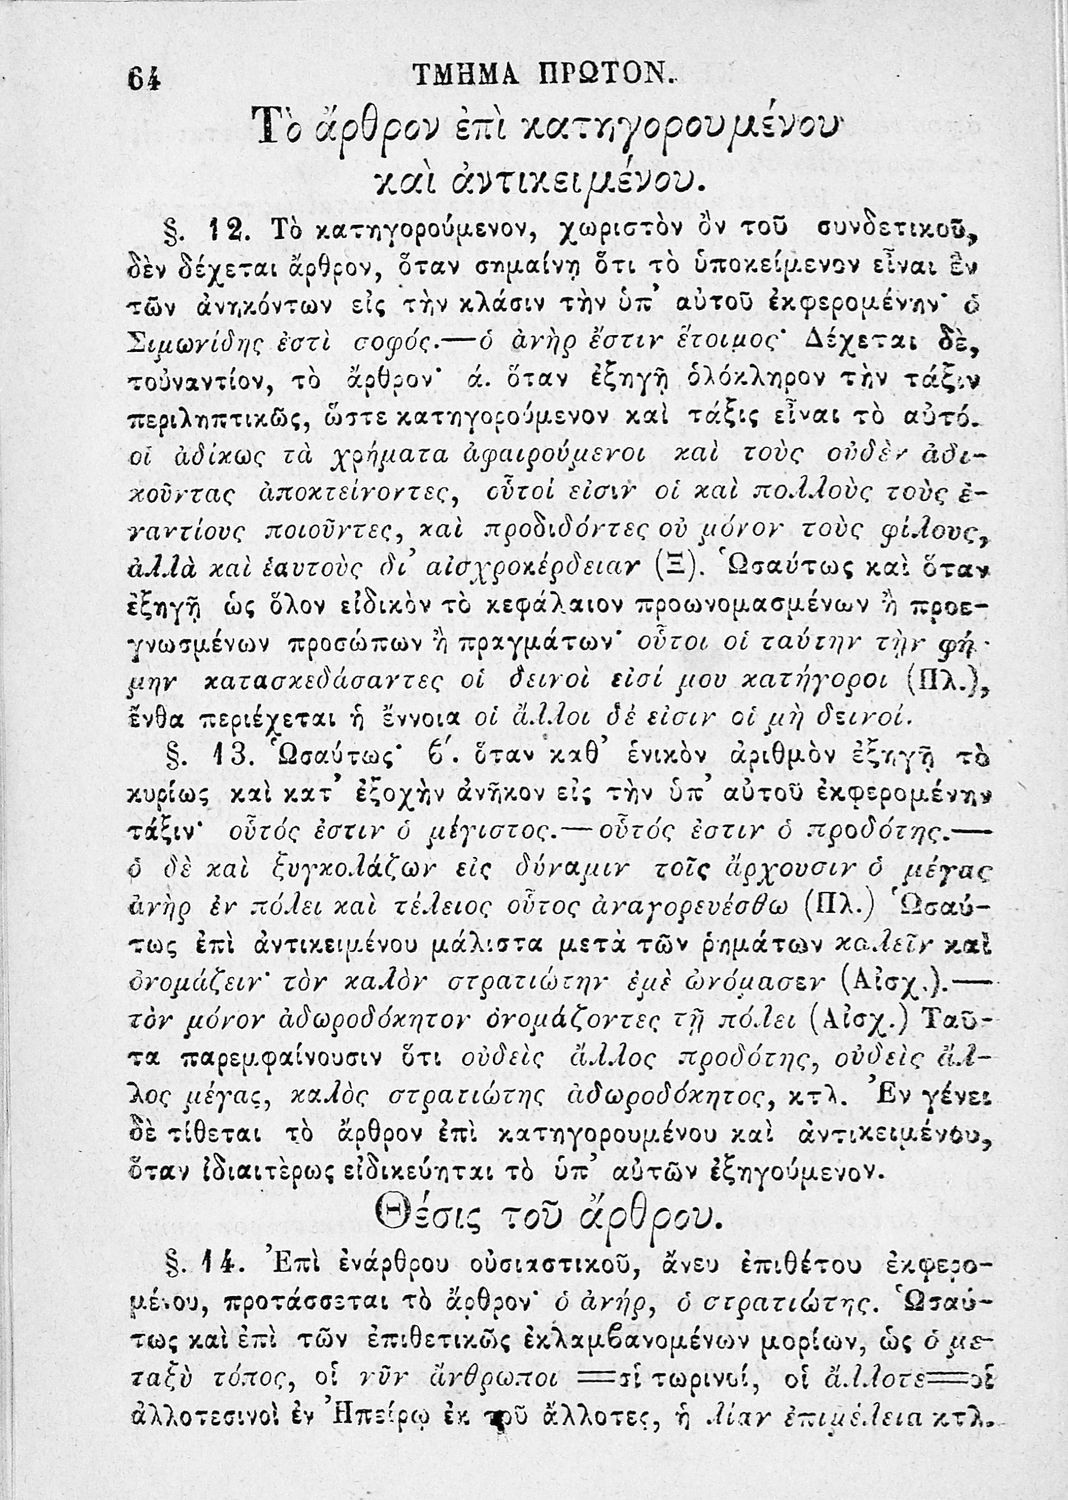 64
ΤΜΗΜΑ ΠΡΩΤΟΝ.
Τὸ ἄρθρον ἐπὶ κατηγορουμένου
καὶ ἀντικειμένου.
§. 12. Τὸ κατηγορούμενον, χωριστὸν ὂν τοῦ συνδετικοῦ,
δὲν δέχεται ἄρθρον, ὅταν σημαίνῃ ὅτι τὸ ὑποκείμενον εἶναι ἓν
τῶν ἀνηκόντων εἰς τὴν κλάσιν τὴν ὑπ’ αὐτοῦ ἐκφερομένην· ὁ
Σιμωνίδης ἐστὶ σοφός.—ὁ ἀνὴρ ἔστιν ἕτοιμος· Δέχεται δὲ,
τοὐναντίον, τὸ ἄρθρον· ά. ὅταν ἐξηγῇ ὁλόκληρον τὴν τάξιν
περιληπτικῶς, ὥστε κατηγορούμενον καὶ τάξις εἶναι τὸ αὐτό.
οἱ ἀδίκως τὰ χρήματα ἀφαιρούμενοι καὶ τοὺς οὐδὲν ἀδι-
κοῦντας ἀποκτείνοντες, οὗτοί εἰσιν οἱ καὶ πολλοὺς τοὺς ἐ-
ναντίους ποιοῦντες, καὶ προδιδόντες οὐ μόνον τοὺς φίλους,
ἀλλὰ καὶ ἑαυτοὺς δι’ αἰσχροκέρδειαν (Ξ). Ὡσαύτως καὶ ὅταν
ἐξηγῇ ὡς ὅλον εἰδικὸν τὸ κεφάλαιον προωνομασμένων ἢ προε-
γνωσμένων προσώπων ἢ πραγμάτων· οὗτοι οἱ ταύτην τὴν φή-
μην κατασκεδάσαντες οἱ δεινοὶ εἰσί μου κατήγοροι (Πλ.),
ἔνθα περιέχεται ἡ ἔννοια οἱ ἄλλοι δέ εἰσιν οἱ μὴ δεινοί.
§. 13. Ὡσαύτως· ϐ΄. ὅταν καθ’ ἑνικὸν ἀριθμὸν ἐξηγῇ τὸ
κυρίως καὶ κατ’ ἐξοχὴν ἀνῆκον εἰς τὴν ὑπ’ αὐτοῦ ἐκφερομένην
τάξιν· οὗτός ἐστιν ὁ μέγιστος.—οὗτός ἐστιν ὁ προδότης.—
ὁ δὲ καὶ ξυγκολάζων εἰς δύναμιν τοῖς ἄρχουσιν ὁ μέγας
ἀνὴρ ἐν πόλει καὶ τέλειος οὗτος ἀναγορευέσθω (Πλ.) Ὡσαύ-
τως ἐπὶ ἀντικειμένου μάλιστα μετὰ τῶν ῥημάτων καλεῖν καὶ
ὀνομάζειν· τὸν καλὸν στρατιώτην ἐμὲ ὠνόμασεν (Αἰσχ.).—
τὸν μόνον ἀδωροδόκητον ὀνομάζοντες τῇ πόλει (Αἰσχ.) Ταῦ-
τα παρεμφαίνουσιν ὅτι οὐδεὶς ἄλλος προδότης, οὐδεὶς ἄλ-
λος μέγας, καλὸς στρατιώτης ἀδωροδόκητος, κτλ. Ἐν γένει
δὲ τίθεται τὸ ἄρθρον ἐπὶ κατηγορουμένου καὶ ἀντικειμένου,
ὅταν ἰδιαιτὲρως εἰδικεύηται τὸ ὑπ’ αὐτῶν ἐξηγούμενον.
Θέσις τοῦ ἄρθρου.
§. 14. Ἐπὶ ἐνάρθρου οὐσιαστικοῦ, ἄνευ ἐπιθέτου ἐκφερο-
μένου, προτάσσεται τὸ ἄρθρον· ὁ ἀνήρ, ὁ στρατιώτης. Ὡσαύ-
τως καὶ ἐπὶ τῶν ἐπιθετικῶς ἐκλαμϐανομένων μορίων, ὡς ὁ με-
ταξὺ τόπος, οἱ νῦν ἄνθρωποι = οἱ τωρινοί, οἱ ἄλλοτε = οἱ
ἀλλοτεσινοὶ ἐν Ἠπείρῳ ἐκ τοῦ ἄλλοτες, ἡ λίαν ἐπιμέλεια κτλ.